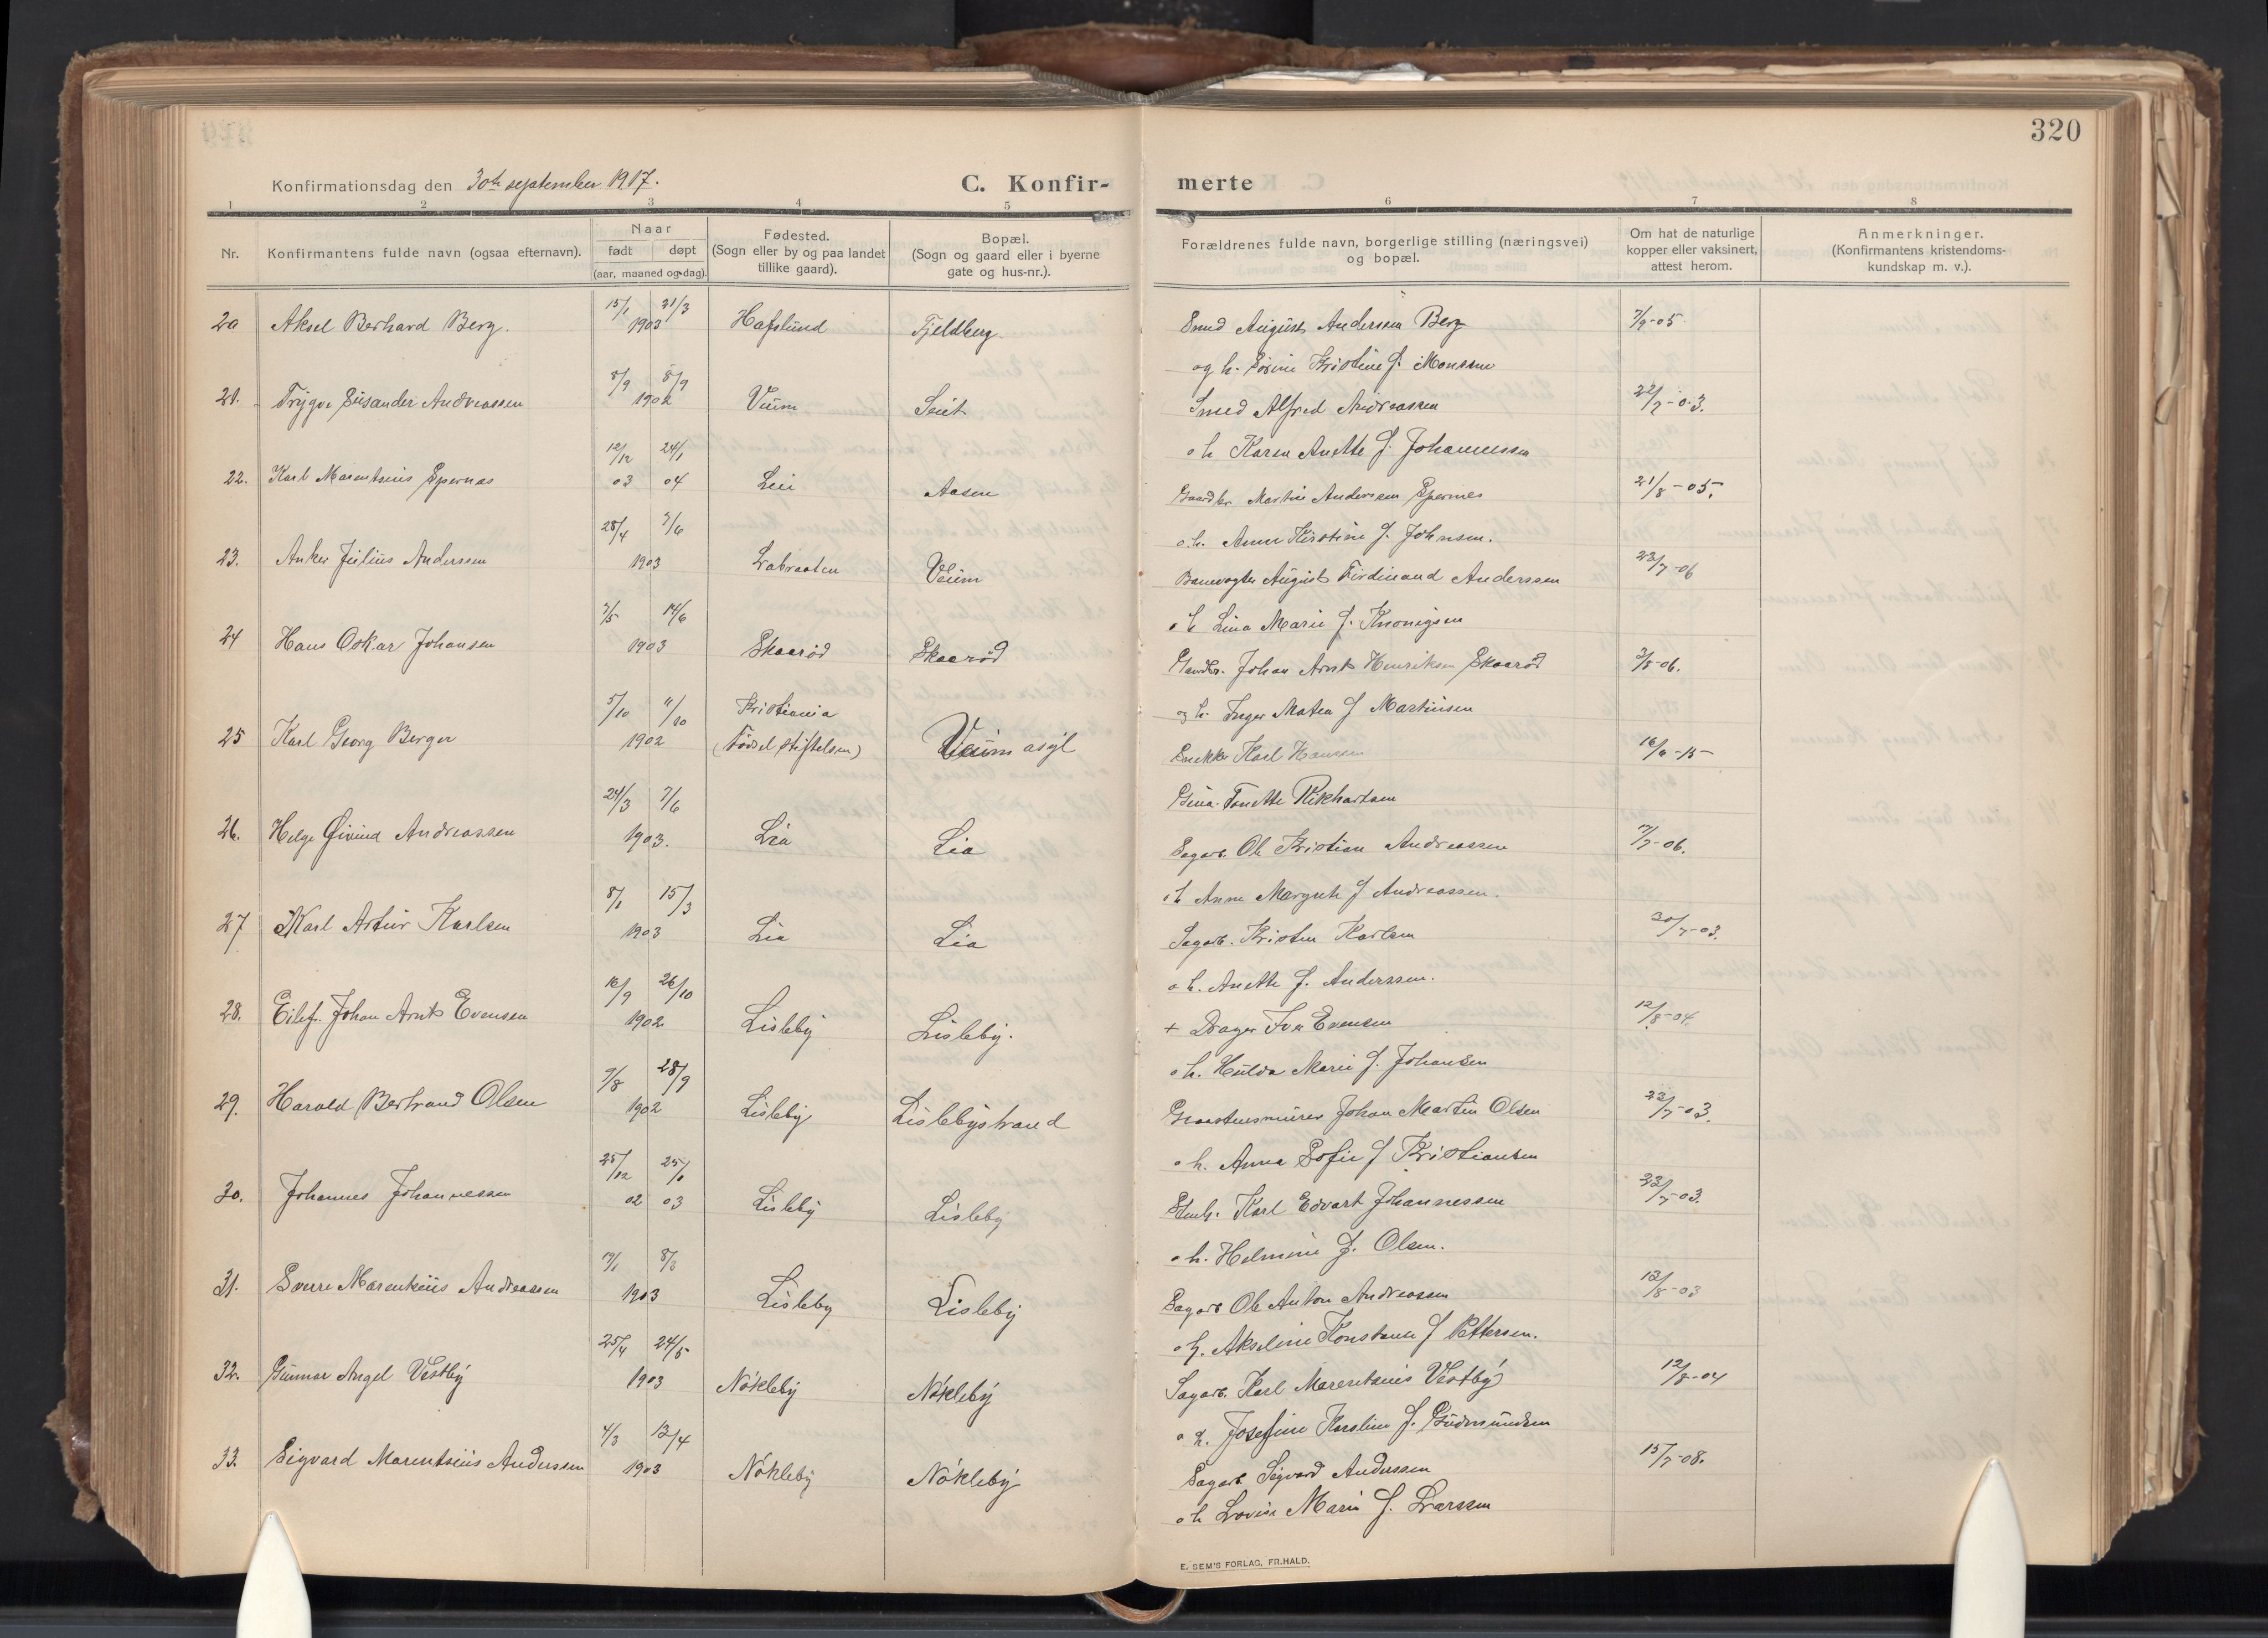 320
Konfirmationsdag den 30te september 1917.
C. Konfir-
merte
1 2 3 4 5 6 7 8
Nr.
Konfirmantens fulde navn (ogsaa efternavn).
Naar
født døpt
(aar, maaned og dag).
Fødested.
(Sogn eller by og paa landet
tillike gaard).
Bopæl.
(Sogn og gaard eller i byerne
gate og hus-nr.).
Forældrenes fulde navn, borgerlige stilling (næringsvei)
og bopæl.
Om hat de naturlige
kopper eller vaksinert,
attest herom.
Anmerkninger.
(Konfirmantens kristendoms-
kundskap m. v.).
15/1 21/3
20 Aksel Berhard Berg. 1903 Hafslund Fjeldberg Smed August Anderssen Berg 7/9-05.
og h. Sörine Kristine f. Monssen
8/9
21. Trygve Lusander Andreassen 1902 Veum Smed Alfred Andreassen
o h Karen Anette f. Johannessen
12/12 24/1
22. Karl Marentsius Spernes 03 04 Lia Aasen Gaardbr. Martin Anderssen Spernes 21/8-05.
o.h. Anne Kirstine f. Johnsen.
28/4 7/6
23. Anker Julius Anderssen 1903 Labraaten Veum Banevogter August Ferdinand Anderssen 23/7-06
o h Lina Marie f.
3/5 14/6
24 Hans Oskar Johansen 1903 Skaaröd Skaaröd Gaardbr. Johan Arnt Henriksen Skaaröd 3/8-06.
og h. Inger Matea f Martinsen
5/10 Kristiania
25 Karl Georg Berger 1902 (Födselstiftelsen) Veum asyl Snekker Karl Hanssen
Gina Tonette Rikhartsen
24/3 7/6
26. Helge Öivind Andreassen 1903. Lia Lia Sagarb. Ole Kristian Andreassen 7/7-06.
o h Anne Margrete f Andreassen.
8/1 15/3
27 Karl Artur Karlsen 1903 Lia Lia Sagarb. Kristen Karlsen 30/7-03.
o h. Anette f. Anderssen.
16/9 26/10
28. Eilef Johan Arnt Evensen 1902 Lisleby Lisleby. + Drager Iver Evensen 12/8-04.
o h. Hulda Marie f. Johansen
9/8 28/9
29. Harald Bertrand Olsen 1902 Lisleby Lislebystrand Graastensmurer Johan Martin Olsen 23/7-03.
o h. Anna Sofie f Kristiansen
25/12 25/1
30. Johannes Johannessen 02 03 Lisleby Lisleby Karl Edvart Johannessen 23/7-03.
o h. Helmine f. Olsen.
8/3
31. Sverre Marentsius Andreassen 1903 Lisleby Lisleby Sagarb Ole Anton Andreassen 13/8-03
o h. Akseline Konstance f Pettersen.
25/4 24/5
32. Gunnar Angel Vestby 1903 Nökleby Nökleby Sagarb. Karl Marentsius Vestby 12/8-04
o h. Josefine Karoline f. Gudmundsen
4/3 13/4
33. Sigvard Marentsius Anderssen 1903 Nökleby Nökleby Sagarb. Sigvard Anderssen 15/7-08.
o h Lovise Marie f. Larssen
E. SEM'S FORLAG, FR.HALD.